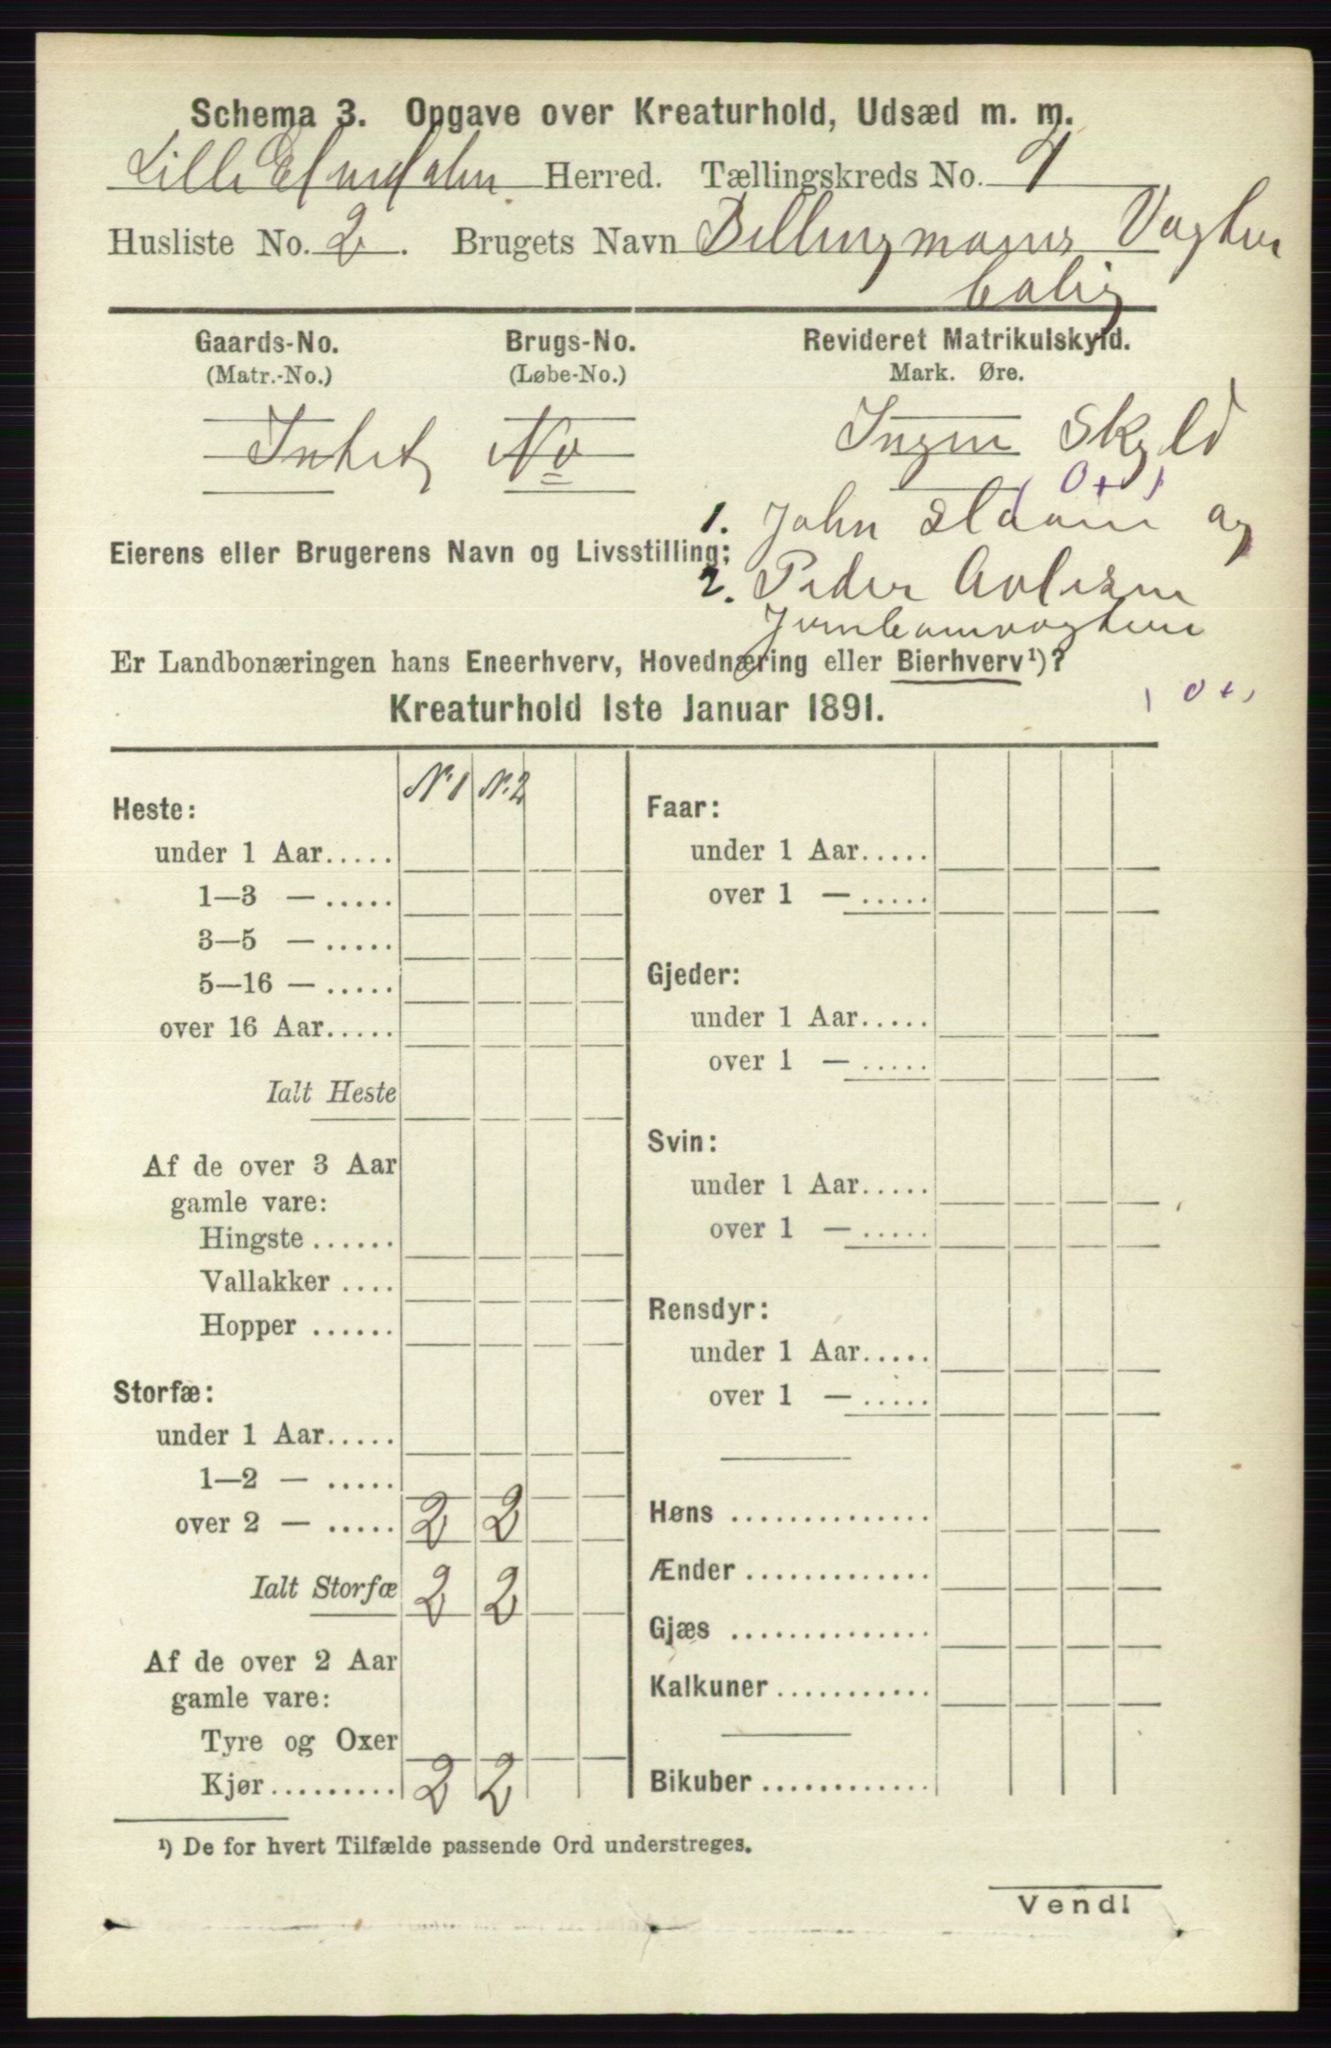 Schema 3. Opgave over Kreaturhold, Udsæd m. m.
Lille Elvedalen Herred. Tællingskreds No. 4
Husliste No. 2. Brugets Navn Bellingmoens Vogter
bolig
Gaards-No. Brugs-No. Revideret Matrikulskyld.
(Matr.-No.) (Løbe-No.) Mark. Øre.
Intet No Ingen Skyld
1. John og
Eierens eller Brugerens Navn og Livsstilling:
2. Peder
Jernbanevogtere
Er Landbonæringen hans Eneerhverv, Hovednæring eller Bierhverv¹)?
Kreaturhold 1ste Januar 1891.
N. 1 N. 2
Heste:
under 1 Aar.....
1—3 — .....
3—5 — .....
5—16 — .....
over 16 Aar.....
Ialt Heste
Af de over 3 Aar
gamle vare:
Hingste ......
Vallakker ....
Hopper ......
Storfæ:
under 1 Aar.....
1—2 — .....
over 2 — ..... 2 2
Ialt Storfæ 2 2
Af de over 2 Aar
gamle vare:
Tyre og Oxer
Kjør......... 2 2
Faar:
under 1 Aar.....
over 1 — .....
Gjeder:
under 1 Aar.....
over 1 — .....
Svin:
under 1 Aar.....
over 1 — .....
Rensdyr:
under 1 Aar.....
over 1 — .....
Høns ..............
Ænder .............
Gjæs ..............
Kalkuner ...........
Bikuber ............
¹) De for hvert Tilfælde passende Ord understreges.
Vend!